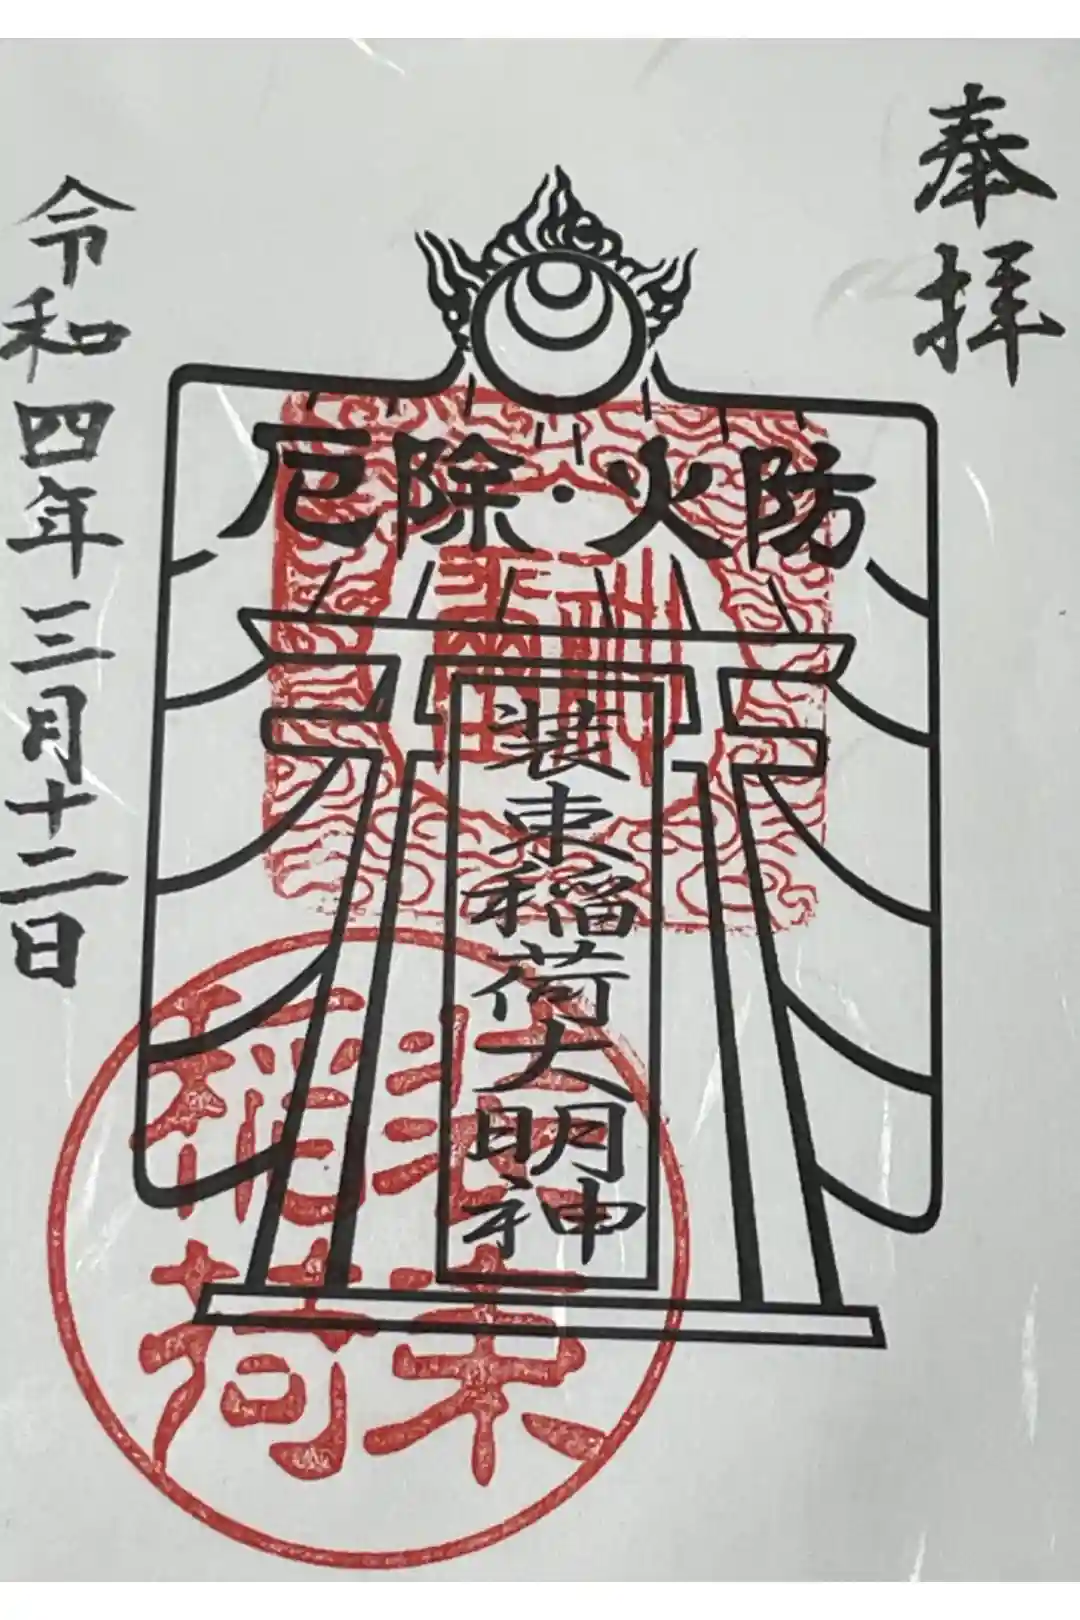 奉拝
厄除・火防
装束稲荷大明神
装束稲荷
令和四年三月十二日